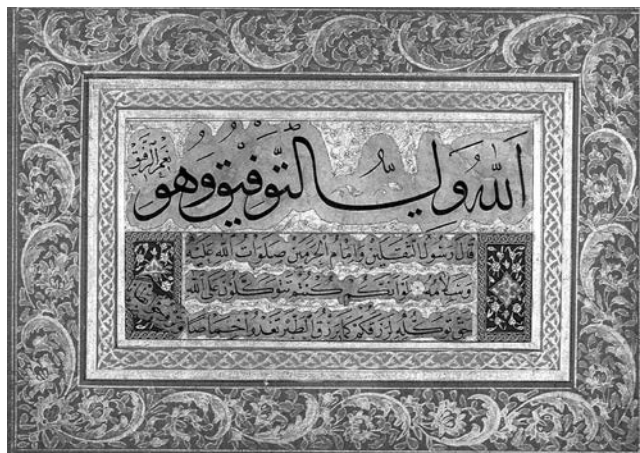 اَللّٰهُ وَلِيُّ التَّوْفِيقِ وَهُوَ
نِعْمَ الرَّفِيقُ
قَالَ رَسُولُ الثَّقَلَيْنِ وَاِمَامُ الْحَرَمَيْنِ صَلَوَاتُ اللّٰهِ عَلَيْهِ
وَسَلَامُهُ لَوْ اَنَّكُمْ كُنْتُمْ تَتَوَكَّلُونَ عَلَى اللّٰهِ
حَقَّ تَوَكُّلِهِ لَرَزَقَكُمْ كَمَا يَرْزُقُ الطَّيْرَ تَغْدُو خِمَاصًا